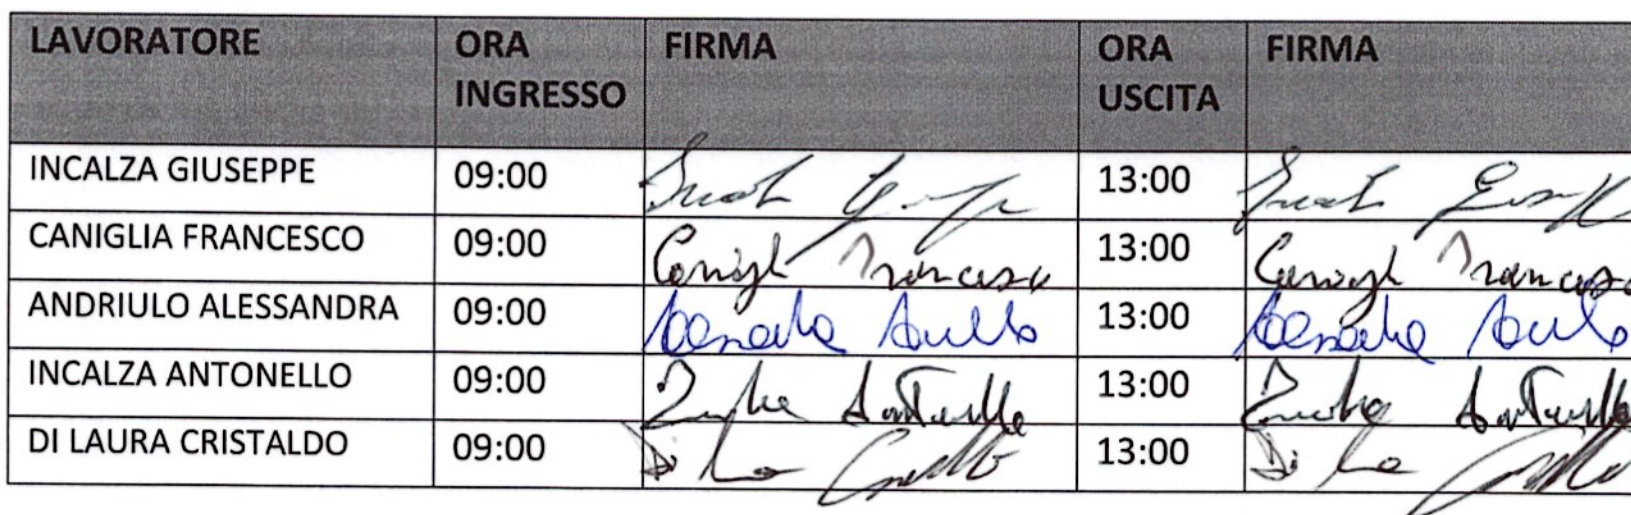 LAVORATORE ORA INGRESSO FIRMA ORA USCITA FIRMA
INCALZA GIUSEPPE 09:00 13:00
CANIGLIA FRANCESCO 09:00 Francesco 13:00 Francesco
ANDRIULO ALESSANDRA 09:00 13:00
INCALZA ANTONELLO 09:00 Antonello 13:00 Antonello
DI LAURA CRISTALDO 09:00 Di 13:00 Di